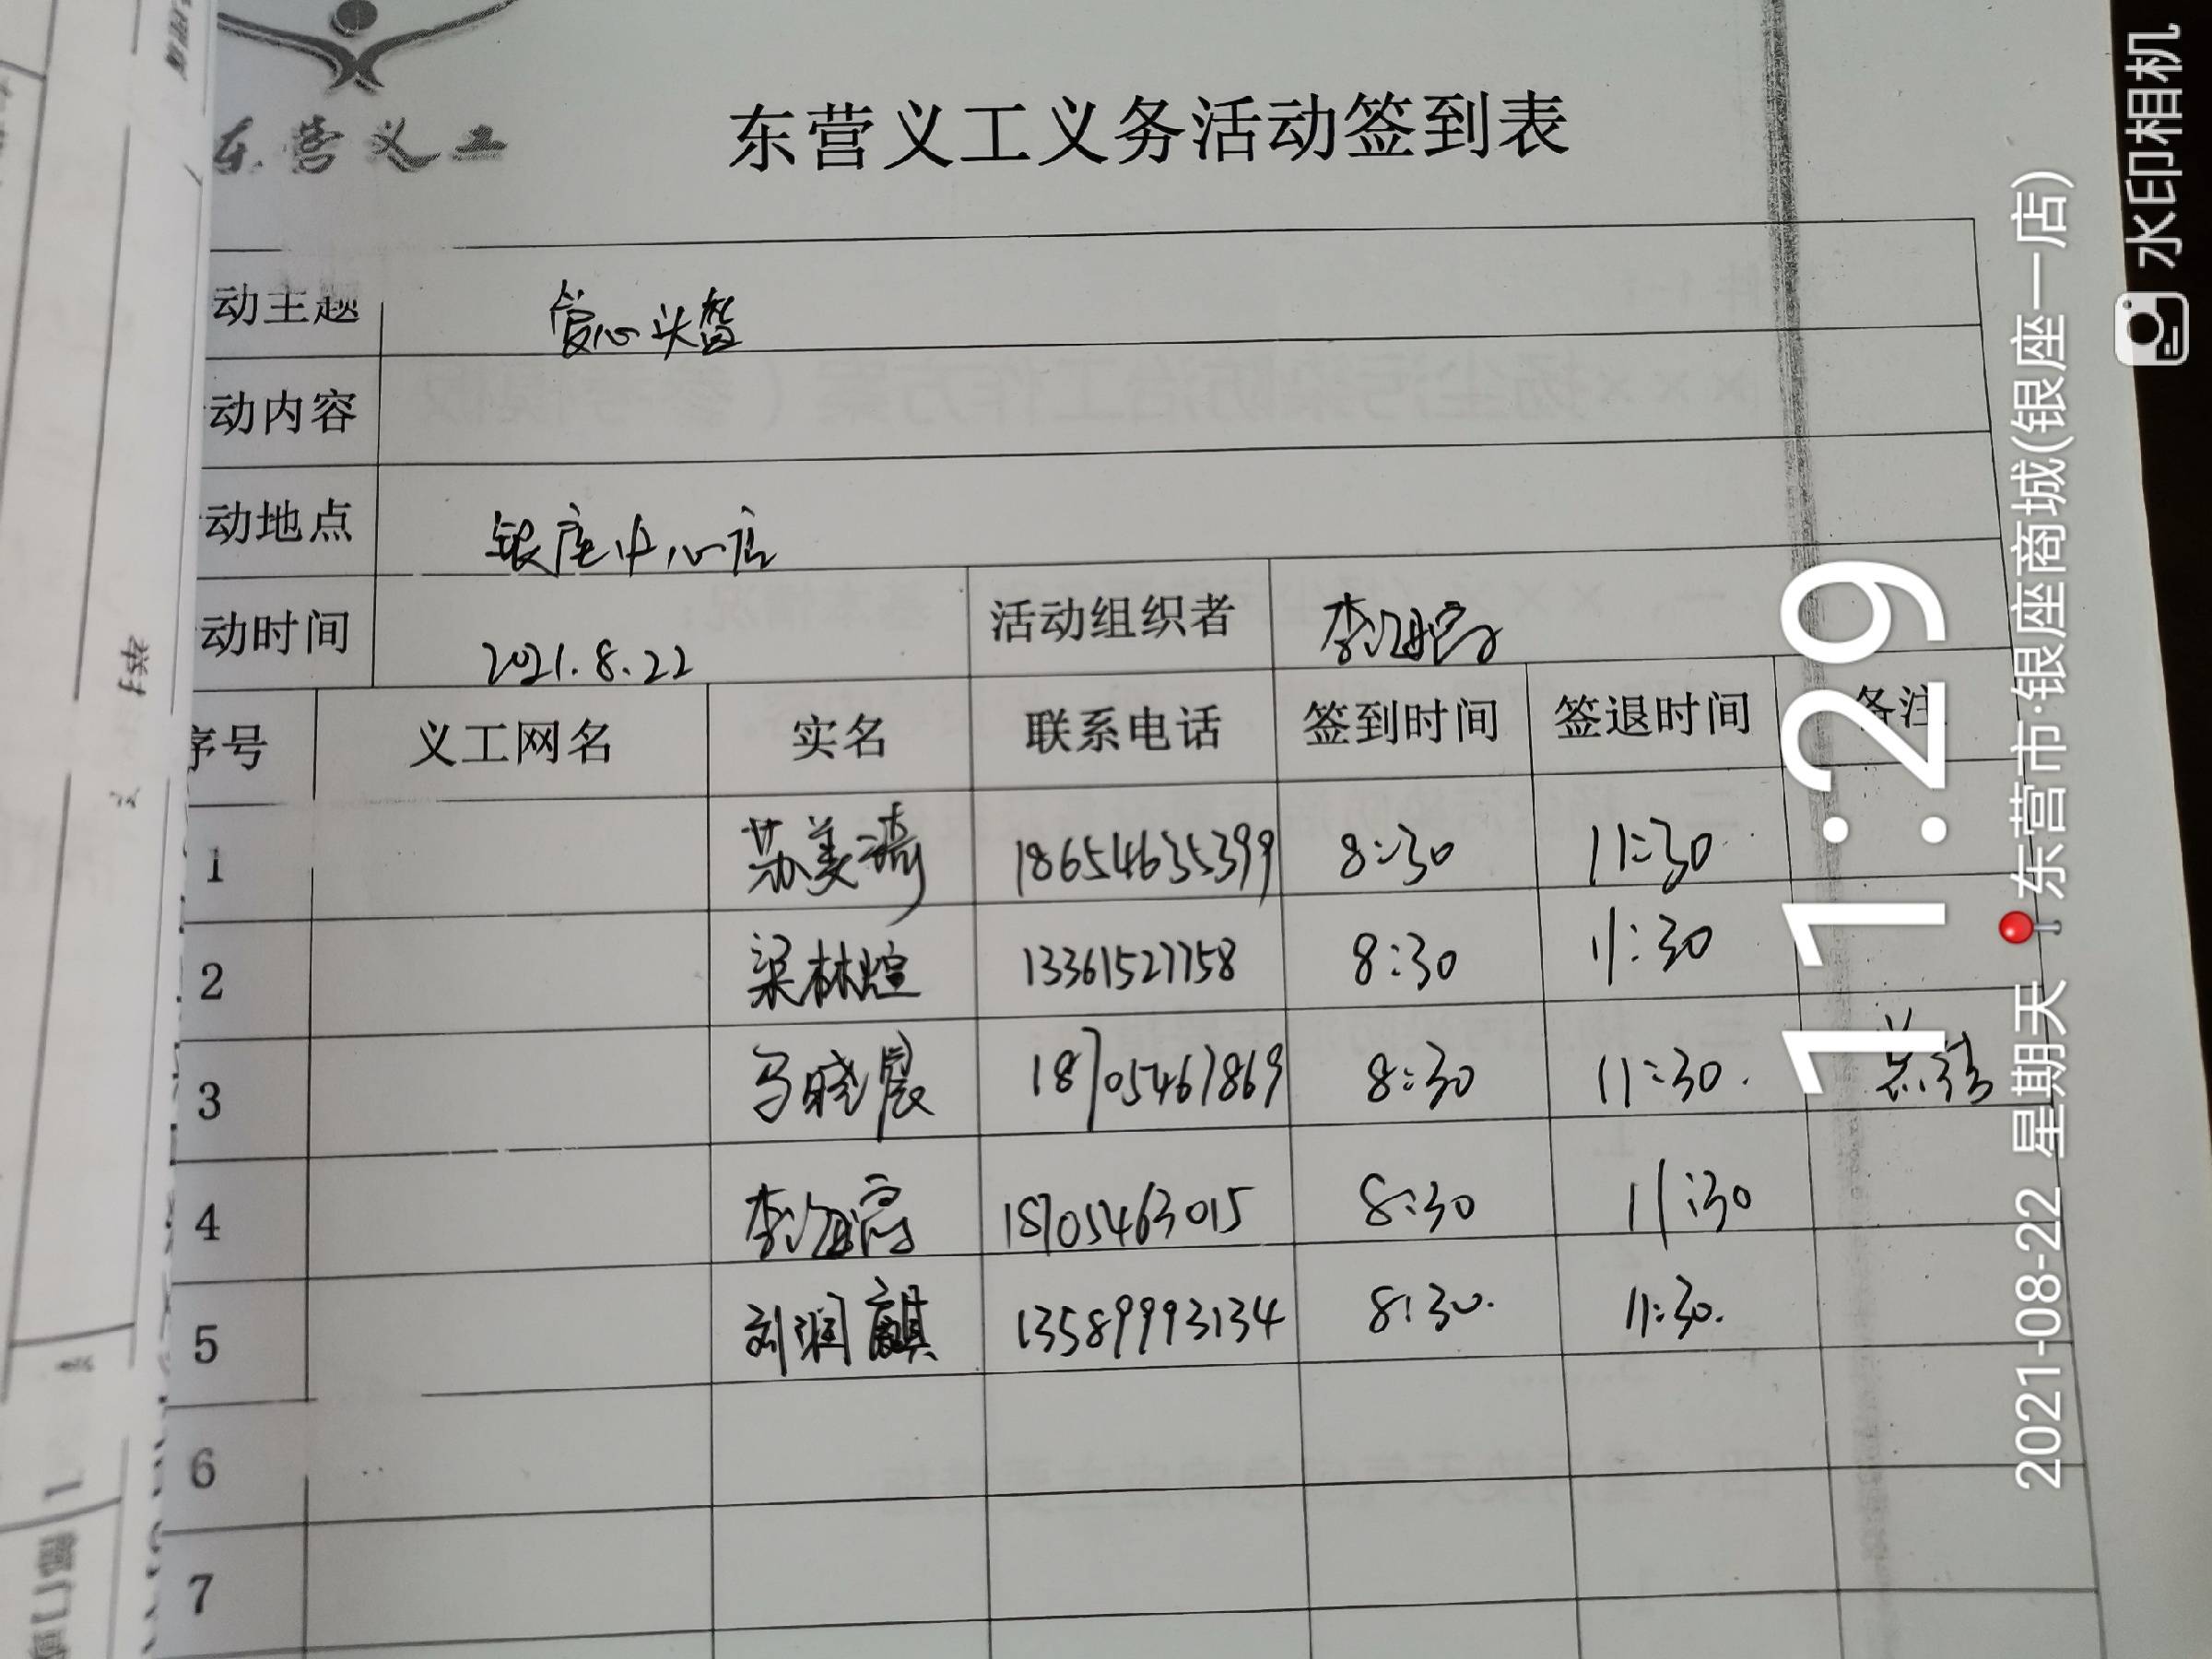 东营义工
东营义工义务活动签到表
动主题 爱心头盔
动内容
动地点 银座中心店
动时间 2021.8.22 活动组织者
序号 义工网名 实名 联系电话 签到时间 签退时间 备注
1 苏美琦 18654635399 8:30 11:30
2 梁林煊 13361527758 8:30 11:30
3 马晓晨 18705467869 8:30 11:30. 总结
4 18705463015 8:30 11:30
5 刘润麒 13589993134 8:30. 11:30.
6
7
水印相机
11:29
2021-08-22 星期天 东营市·银座商城(银座一店)